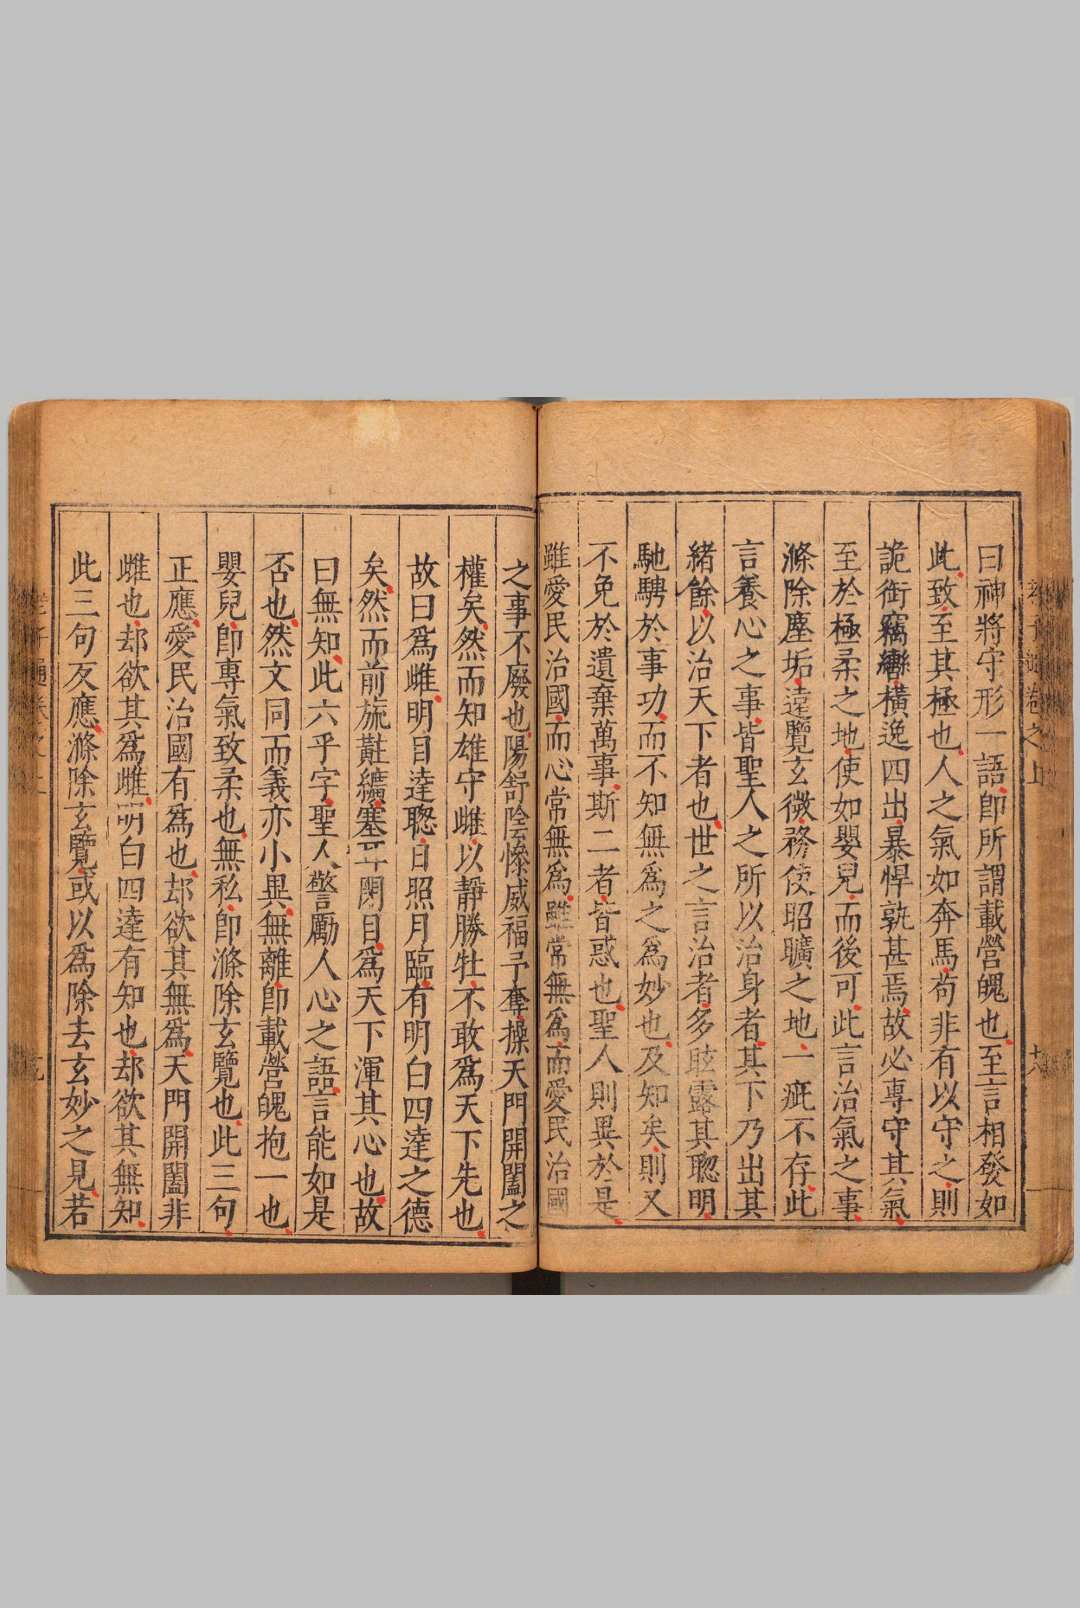 曰神將守形一語卽所謂載營魄也至言相發如
此致至其極也人之氣如奔馬苟非有以守之則
詭銜竊轡橫逸四出暴悍孰甚焉故必專守其氣
至於極柔之地使如嬰兒而後可此言治氣之事
滌除塵垢遠覽玄微務使昭曠之地一疵不存此
言養心之事皆聖人之所以治身者其下乃出其
緒餘以治天下者也世之言治者多眩露其聰明
馳騁於事功而不知無為之為妙也及知矣則又
不免於遺棄萬事斯二者皆惑也聖人則異於是
雖愛民治國而心常無為雖常無為而愛民治國
之事不廢也陽舒陰慘威福予奪操天門開闔之
權矣然而知雄守雌以靜勝牡不敢為天下先也
故曰為雌明目達聰日照月臨有明白四達之德
矣然而前旒黈纊塞耳閉目為天下渾其心也故
曰無知此六乎字聖人警勵人心之語言能如是
否也然文同而義亦小異無離卽載營魄抱一也
嬰兒卽專氣致柔也無私卽滌除玄覽也此三句
正應愛民治國有為也却欲其無為天門開闔非
雌也却欲其為雌明白四達有知也却欲其無知
此三句反應滌除玄覽或以為除去玄妙之見若